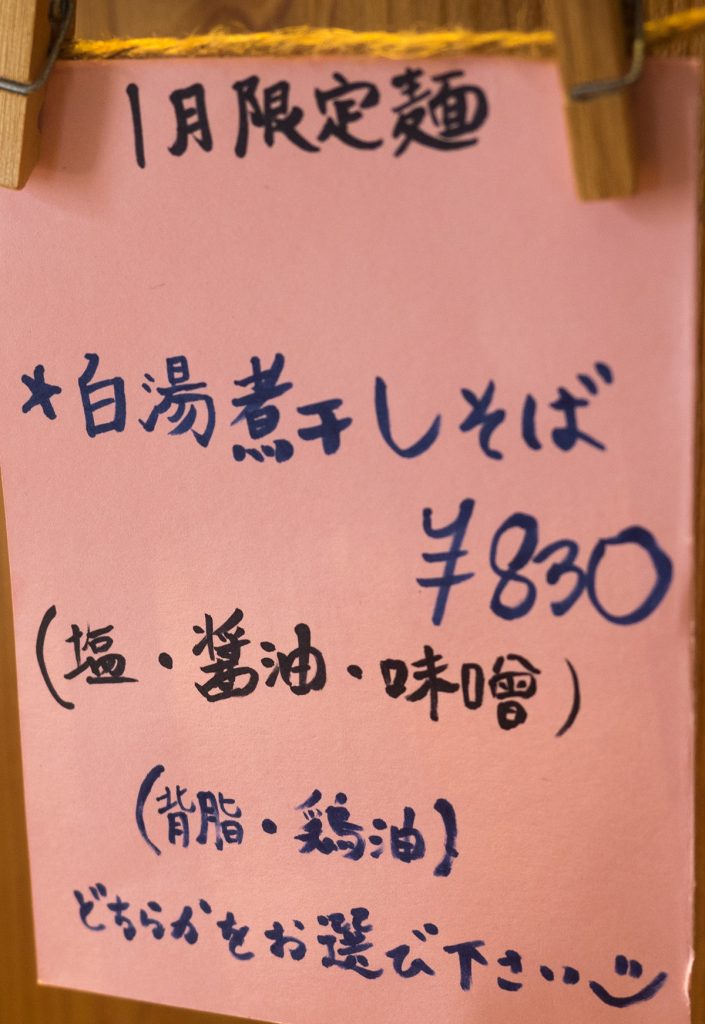 1月限定麺
*白湯煮干しそば
¥830
(塩・醤油・味噌)
(背脂・鶏油)
どちらかをお選び下さい